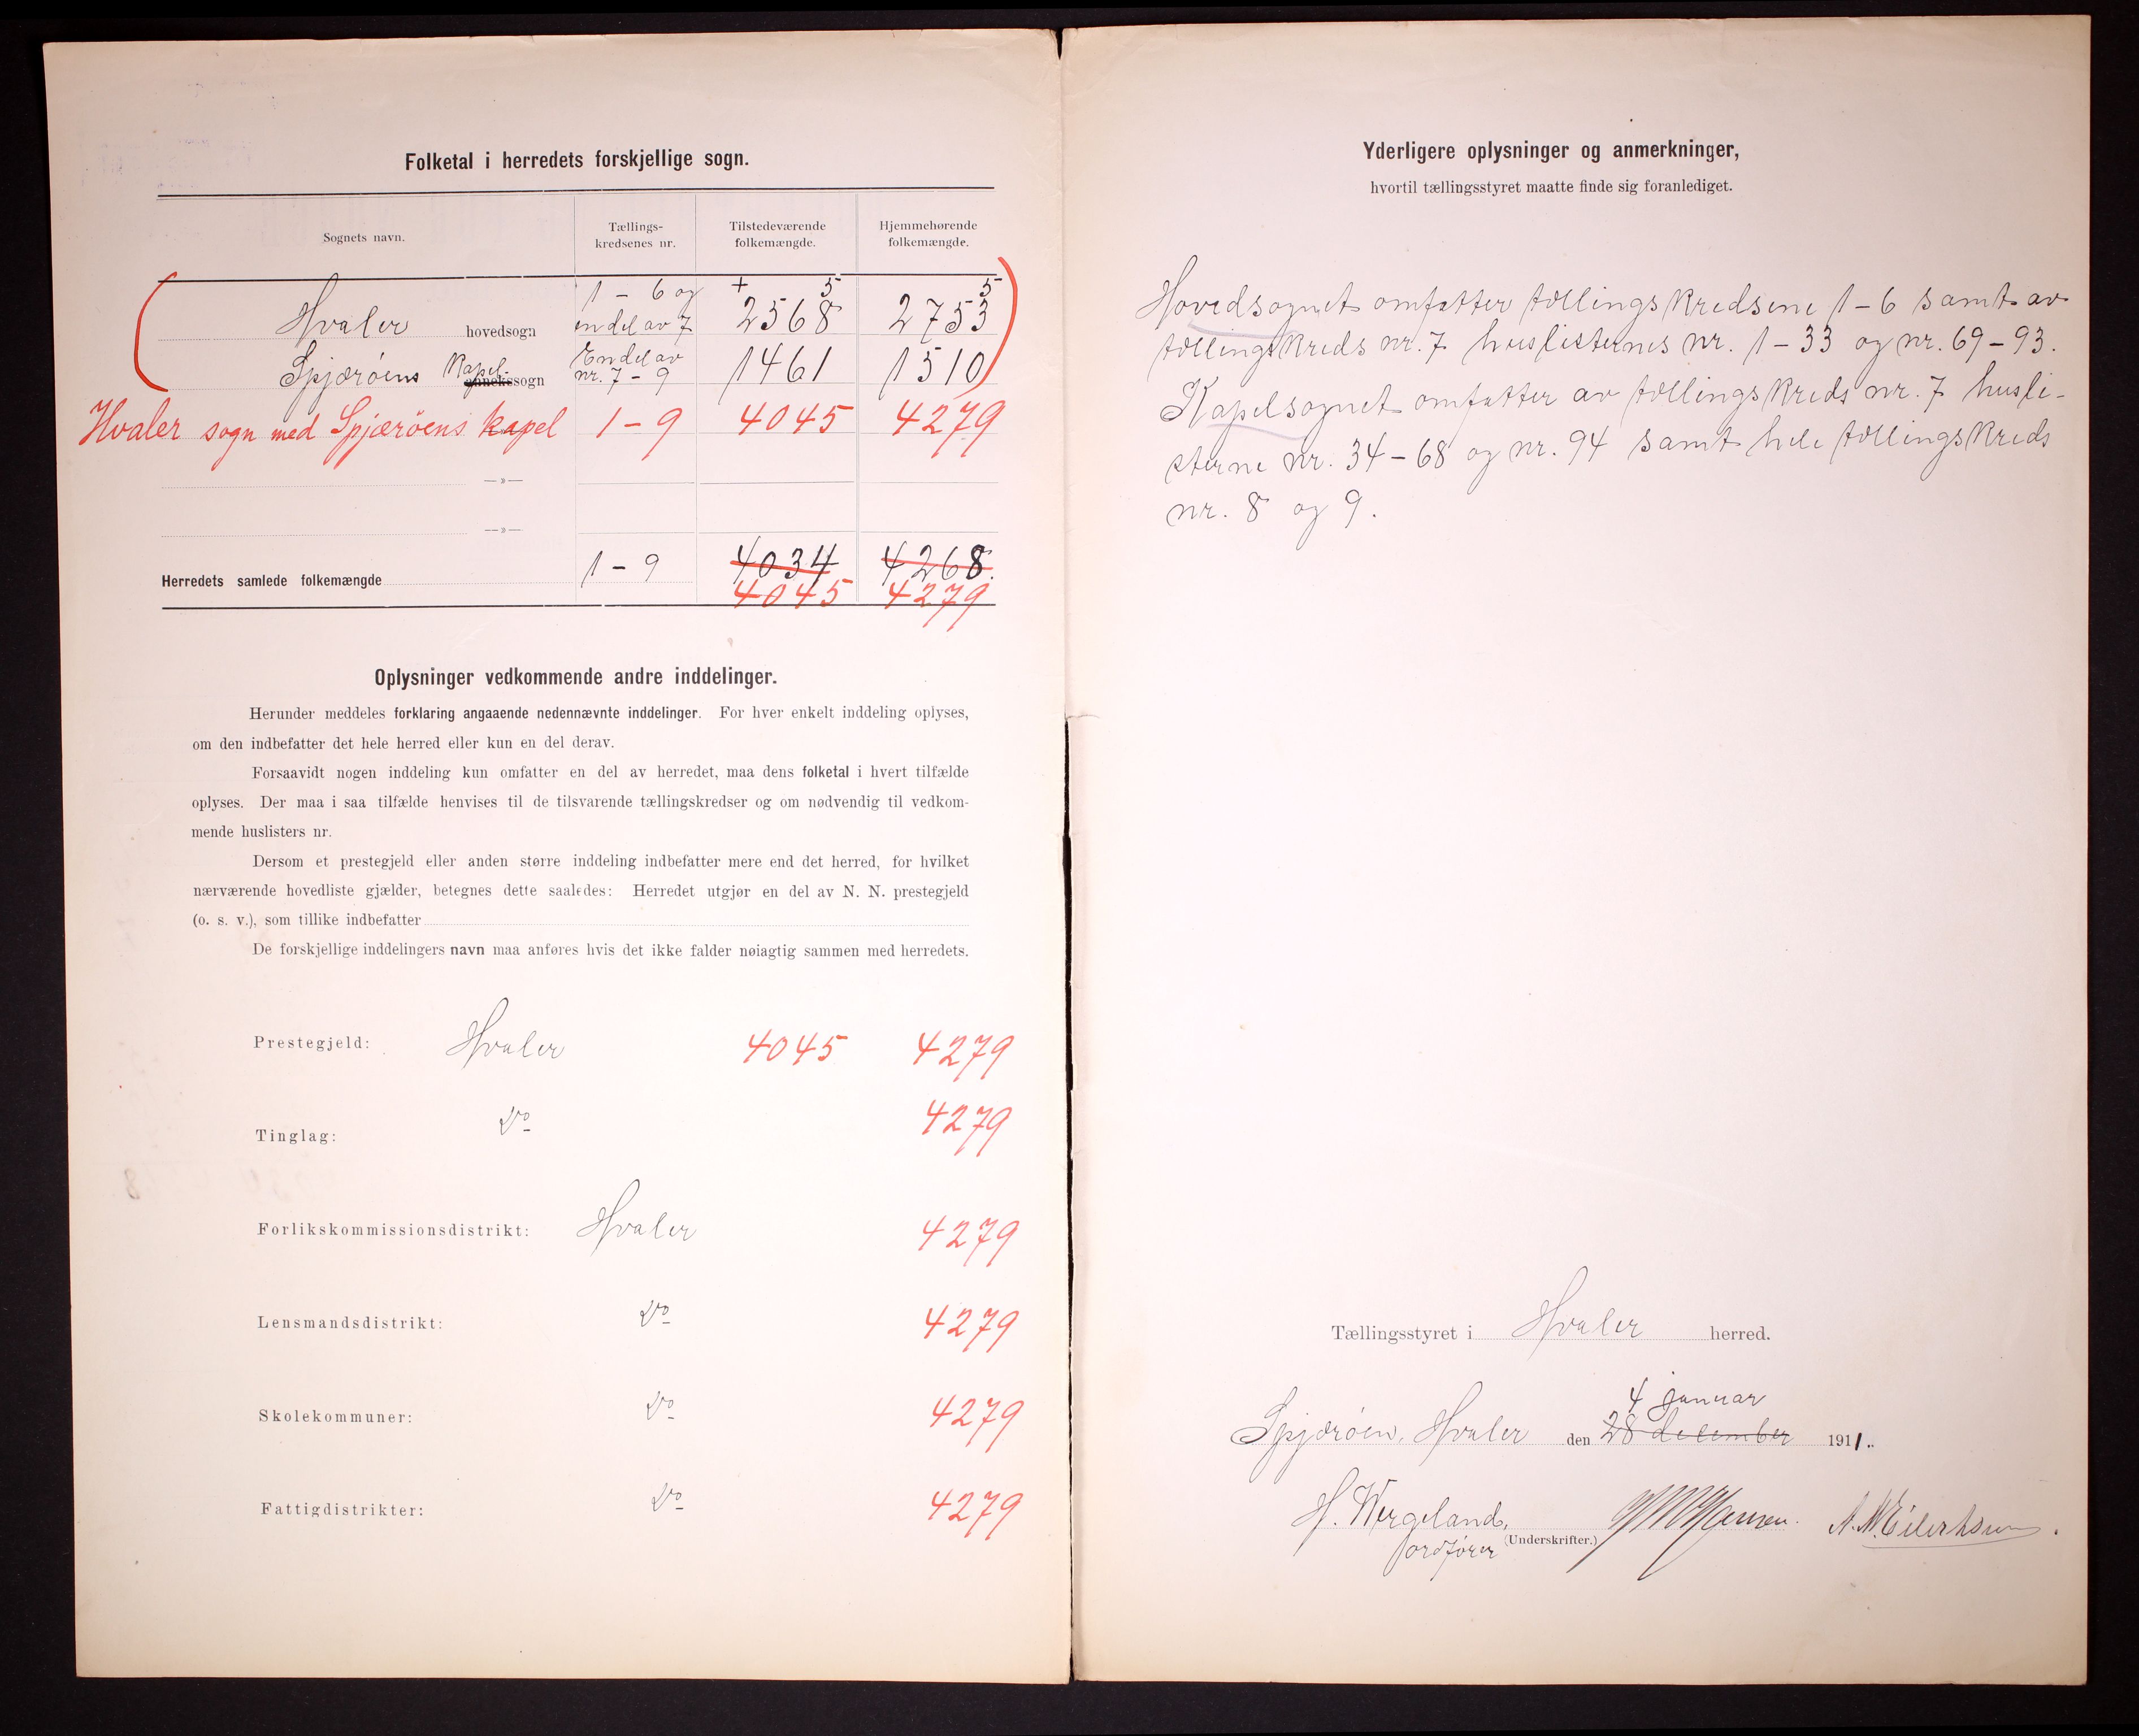 Folketal i herredets forskjellige sogn.
Sognets navn.
Tællings-
kredsenes nr.
Tilstedeværende
folkemængde.
Hjemmehørende
folkemængde.
1 - 6 og + 5 5
Hvaler hovedsogn endel av 7 2568 2753
Spjærøens Kapel- annekssogn Endel av nr. 7-9 1461 1510
Hvaler sogn med Spjærøens kapel 1-9 4045 4279
—»—
—»—
Herredets samlede folkemængde 1-9 4034 4268.
4045 4279
Oplysninger vedkommende andre inddelinger.
Herunder meddeles forklaring angaaende nedennævnte inddelinger. For hver enkelt inddeling oplyses,
om den indbefatter det hele herred eller kun en del derav.
Forsaavidt nogen inddeling kun omfatter en del av herredet, maa dens folketal i hvert tilfælde
oplyses. Der maa i saa tilfælde henvises til de tilsvarende tællingskredser og om nødvendig til vedkom-
mende huslisters nr.
Dersom et prestegjeld eller anden større inddeling indbefatter mere end det herred, for hvilket
nærværende hovedliste gjælder, betegnes dette saaledes: Herredet utgjør en del av N. N. prestegjeld
(o. s. v.), som tillike indbefatter
De forskjellige inddelingers navn maa anføres hvis det ikke falder nøiagtig sammen med herredets.
Prestegjeld: Hvaler 4045 4279
Tinglag: Do 4279
Forlikskommissionsdistrikt: Hvaler 4279
Lensmandsdistrikt: Do 4279
Skolekommuner: Do 4279
Fattigdistrikter: Do 4279
Yderligere oplysninger og anmerkninger,
hvortil tællingsstyret maatte finde sig foranlediget.
Hovedsognet omfatter tællingskredsene 1-6 samt av
tællingskreds nr. 7 huslisternes nr. 1-33 og nr. 69-93.
Kapelsognet omfatter av tællingskreds nr. 7 husli-
sterne nr. 34-68 og nr. 94 samt hele tællingskreds
nr. 8 og 9.
Tællingsstyret i Hvaler herred.
4 januar
Spjærøen, Hvaler den 28 december 1911.
H. Wergeland, Hansen. A. M. Eilertsen.
ordfører (Underskrifter.)